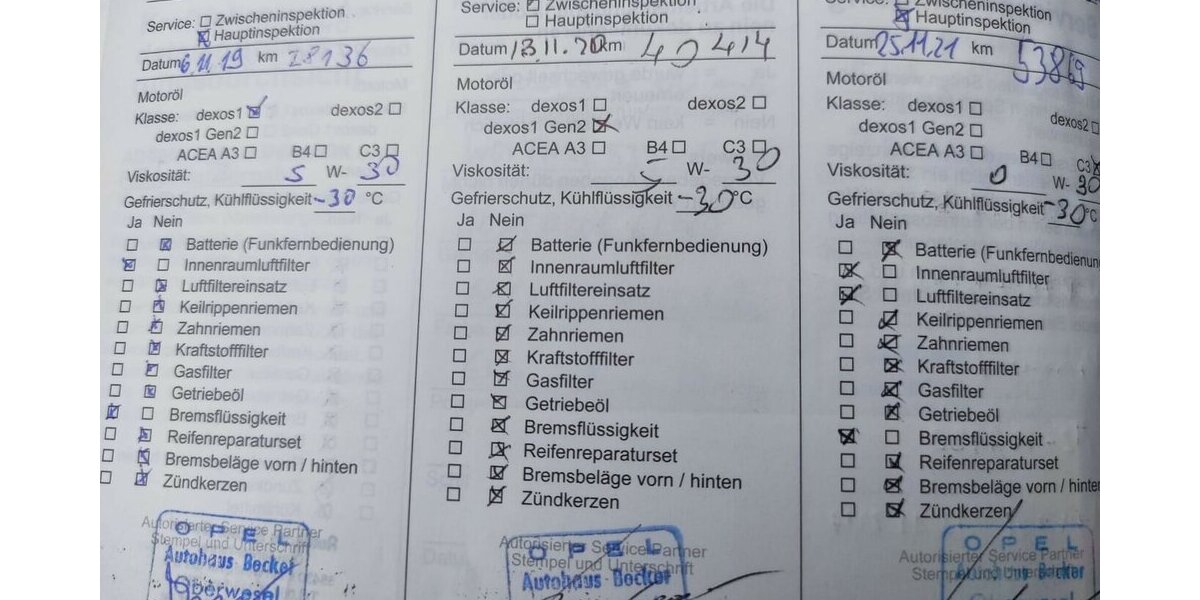 Service: Zwischeninspektion
Hauptinspektion
Datum 6.11.19 km 28136
Motoröl
Klasse: dexos1 dexos2
dexos1 Gen2
ACEA A3 B4 C3
Viskosität: 5 W- 30
Gefrierschutz, Kühlflüssigkeit -30 °C
Ja Nein
Batterie (Funkfernbedienung)
Innenraumluftfilter
Luftfiltereinsatz
Keilrippenriemen
Zahnriemen
Kraftstofffilter
Gasfilter
Getriebeöl
Bremsflüssigkeit
Reifenreparaturset
Bremsbeläge vorn / hinten
Zündkerzen
Autorisierter Service Partner
Stempel und Unterschrift
OPEL
Autohaus Becker
Oberwesel
Service: Zwischeninspektion
Hauptinspektion
Datum 13.11.20 km 40414
Motoröl
Klasse: dexos1 dexos2
dexos1 Gen2
ACEA A3 B4 C3
Viskosität: 5 W- 30
Gefrierschutz, Kühlflüssigkeit -30 °C
Ja Nein
Batterie (Funkfernbedienung)
Innenraumluftfilter
Luftfiltereinsatz
Keilrippenriemen
Zahnriemen
Kraftstofffilter
Gasfilter
Getriebeöl
Bremsflüssigkeit
Reifenreparaturset
Bremsbeläge vorn / hinten
Zündkerzen
Autorisierter Service Partner
Stempel und Unterschrift
OPEL
Autohaus Becker
Service: Zwischeninspektion
Hauptinspektion
Datum 25.11.21 km 53869
Motoröl
Klasse: dexos1 dexos2
dexos1 Gen2
ACEA A3 B4 C3
Viskosität: 0 W- 30
Gefrierschutz, Kühlflüssigkeit -30 °C
Ja Nein
Batterie (Funkfernbedienun
Innenraumluftfilter
Luftfiltereinsatz
Keilrippenriemen
Zahnriemen
Kraftstofffilter
Gasfilter
Getriebeöl
Bremsflüssigkeit
Reifenreparaturset
Bremsbeläge vorn / hinte
Zündkerzen
Autorisierter Service Partner
Stempel und Unterschrift
OPEL
Becker